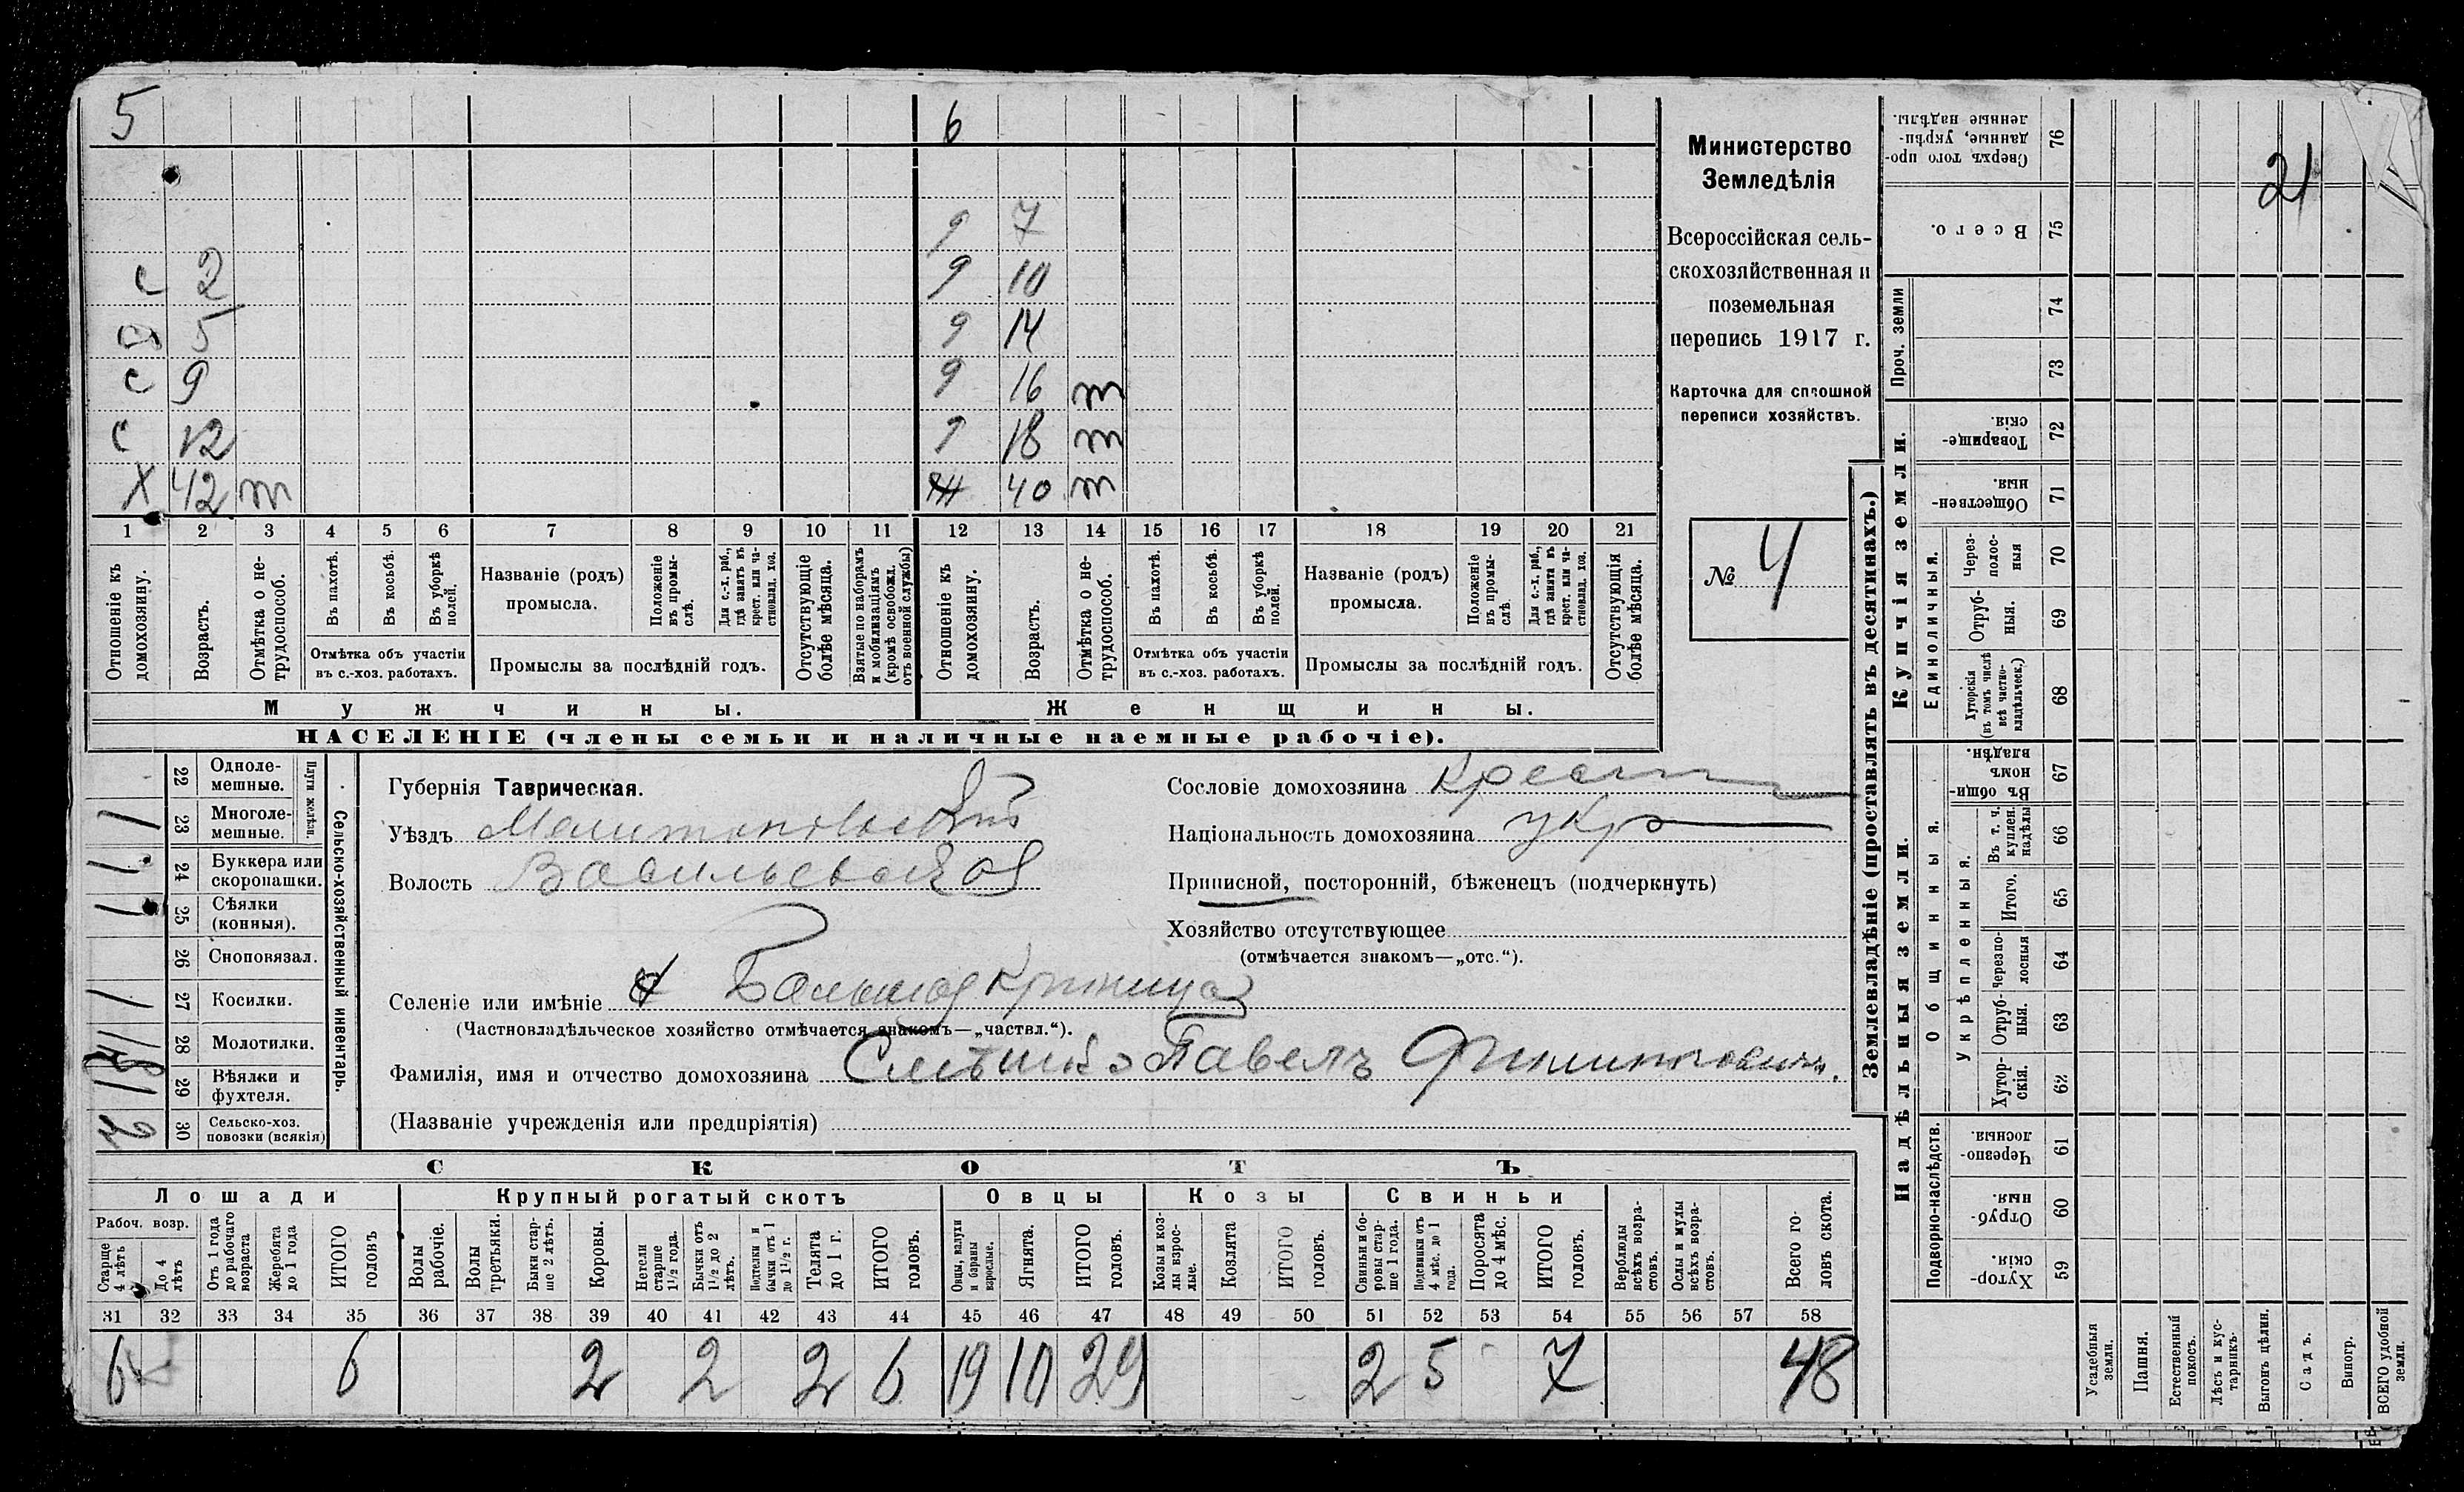 5 6
9 7
с 2 9 10
д 5 9 14
с 9 9 16 т
с 12 9 18 т
Х 42 т ж 40 т
1 2 3 4 5 6 7 8 9 10 11 12 13 14 15 16 17 18 19 20 21
Отношеніе къ домохозяину.
Возрастъ.
Отмѣтка о не-трудоспособ.
Въ пахотѣ.
Въ косьбѣ.
Въ уборкѣ полей.
Отмѣтка объ участіи
въ с.-хоз. работахъ.
Названіе (родъ)
промысла.
Положеніе въ промы-слѣ.
Для с.-х. раб., гдѣ занятъ въ крест. или ча-стновлад. хоз.
Промыслы за послѣдній годъ.
Отсутствующіе болѣе мѣсяца.
Взятые по наборамъ и мобилизаціямъ (кромѣ освобожд. отъ военной службы)
Отношеніе къ домохозяину.
Возрастъ.
Отмѣтка о не-трудоспособ.
Въ пахотѣ.
Въ косьбѣ.
Въ уборкѣ полей.
Отмѣтка объ участіи
въ с.-хоз. работахъ.
Названіе (родъ)
промысла.
Положеніе въ промы-слѣ.
Для с.-х. раб., гдѣ занята въ крест. или ча-стновлад. хоз.
Промыслы за послѣдній годъ.
Отсутствующія болѣе мѣсяца.
Мужчины. Женщины.
НАСЕЛЕНІЕ (члены семьи и наличные наемные рабочіе).
Министерство
Земледѣлія
Всероссійская сель-
скохозяйственная и
поземельная
перепись 1917 г.
Карточка для сплошной
переписи хозяйствъ.
№ 4
22 Одноле-мешные.
23 Многоле-мешные. 1
Плуги желѣзн.
24 Буккера или скоропашки. 1
25 Сѣялки (конныя). 1
26 Сноповязал.
27 Косилки. 1
28 Молотилки.
29 Вѣялки и фухтеля. 1
30 Сельско-хоз. повозки (всякія)
Сельско-хозяйственный инвентарь.
Губернія Таврическая.
Уѣздъ Мелитопольскій
Волость Васильевская
Селеніе или имѣніе Большая Криница
(Частновладѣльческое хозяйство отмѣчается знакомъ—„частвл.“).
Фамилія, имя и отчество домохозяина Павелъ Филипповичъ.
(Названіе учрежденія или предпріятія)
Сословіе домохозяина Крест
Національность домохозяина укр
Приписной, посторонній, бѣженецъ (подчеркнуть)
Хозяйство отсутствующее
(отмѣчается знакомъ—„отс.“).
СКОТЪ
Лошади Крупный рогатый скотъ Овцы Козы Свиньи
Рабоч. возр.
Старше 4 лѣтъ
До 4 лѣтъ
Отъ 1 года до рабочаго возраста
Жеребята до 1 года
ИТОГО головъ
Волы рабочіе.
Волы третьяки.
Быки стар-ше 2 лѣтъ.
Коровы.
Нетели старше 1½ года.
Бычки отъ 1½ до 2 лѣтъ.
бычки отъ 1 до 1½ г.
Телята до 1 г.
ИТОГО головъ.
Овцы, валухи и бараны взрослые.
Ягнята.
ИТОГО головъ.
Козы и коз-лы взрос-лые.
Козлята
ИТОГО головъ.
Свиньи и бо-ровы стар-ше 1 года.
Подсвинки отъ 4 мѣс. до 1 года.
Поросята до 4 мѣс.
ИТОГО головъ.
Верблюды всѣхъ возра-стовъ.
Ослы и мулы всѣхъ возра-стовъ.
Всего го-ловъ скота.
31 32 33 34 35 36 37 38 39 40 41 42 43 44 45 46 47 48 49 50 51 52 53 54 55 56 57 58
6 6 2 2 2 6 19 10 29 2 5 7 48
Землевладѣніе (проставлять въ десятинахъ.)
Купчія земли.
Надѣльныя земли.
21
Сверхъ того про-данные, укрѣп-ленные надѣлы. 76
Всего. 75
Проч. земли
74
73
Товарище-скія 72
Обществен-ныя. 71
Единоличныя.
Через-полос-ныя 70
Отруб-ныя. 69
Хуторскія (въ томъ числѣ всѣ частно-владѣльческ.) 68
Общинныя.
Въ общи-номъ владѣн. 67
Укрѣпленныя.
Въ т. ч. куплен. надѣлы 66
Итого. 65
Черезпо-лосныя 64
Отруб-ныя. 63
Хутор-скія. 62
Подворно-наслѣдств.
Черезпо-лосныя. 61
Отруб-ныя. 60
Хутор-скія. 59
Усадебныя земли.
Пашня.
Естественный покосъ.
Лѣсъ и кус-тарникъ.
Выгонъ цѣлин.
Садъ.
Виногр.
ВСЕГО удобной земли.